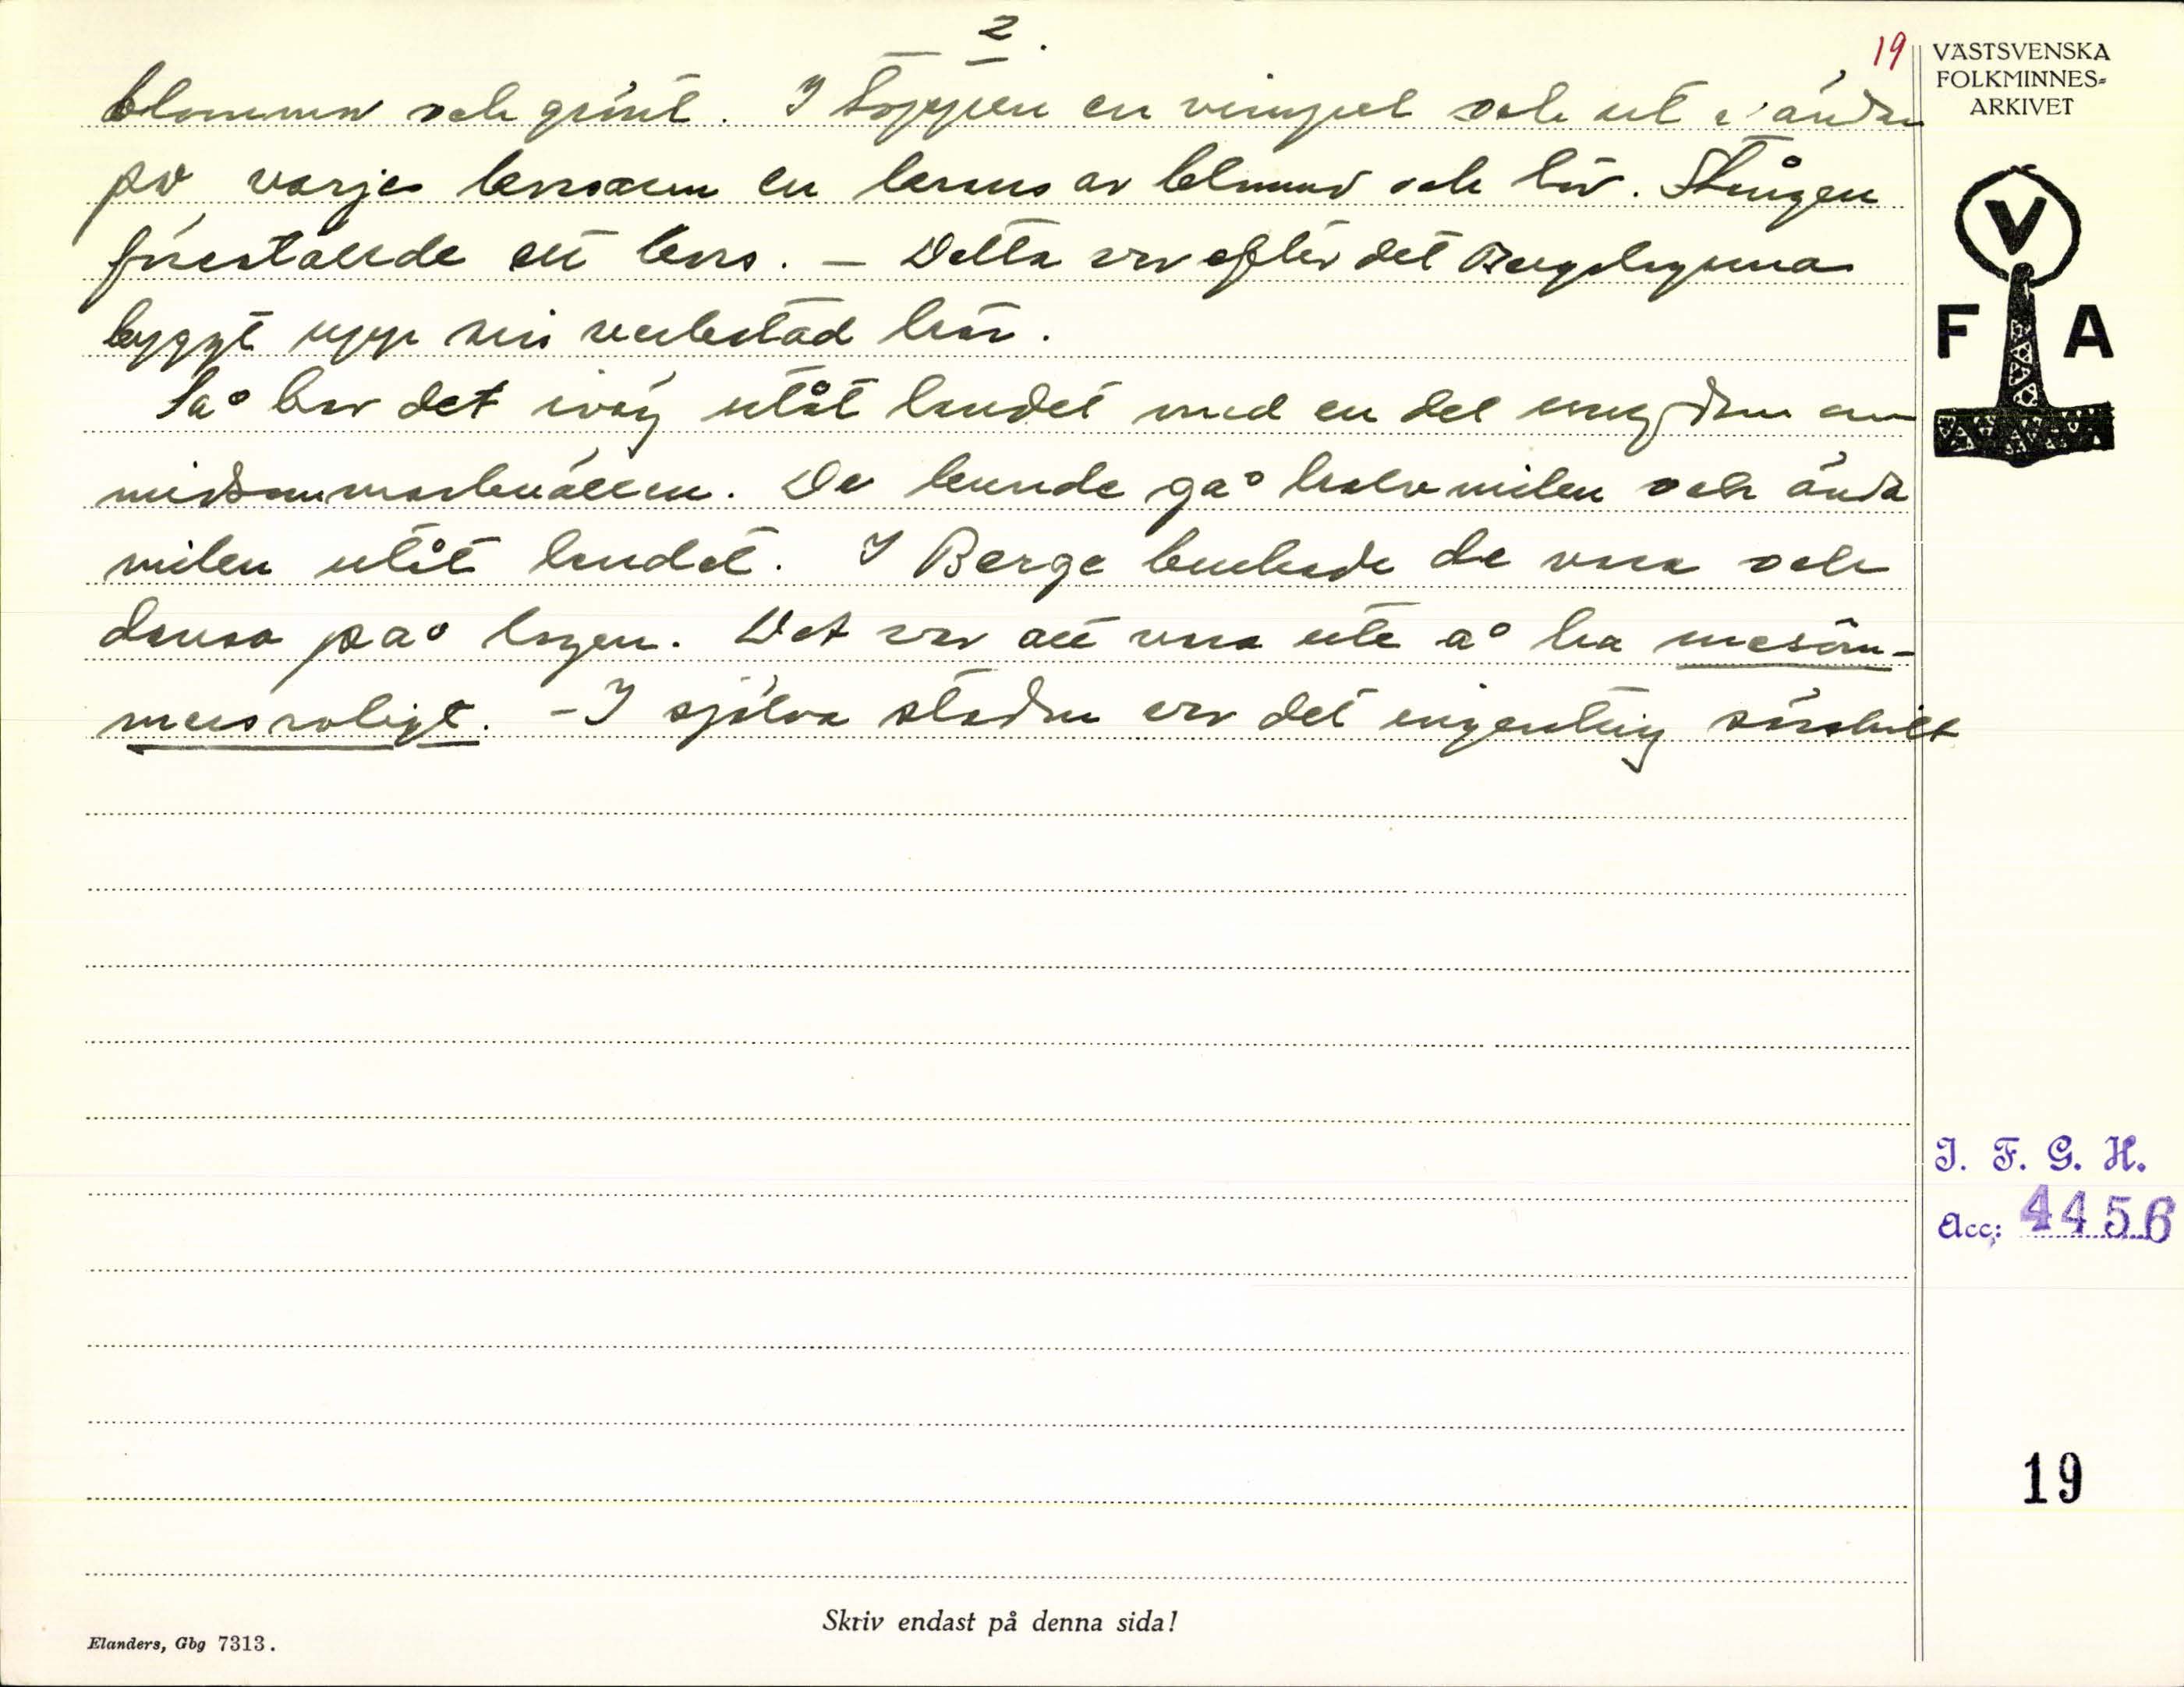 2.
19
blommor och grönt. I toppen en vimpel och ut i ändan
på varje korsarm en krans av blommor och löv. Stången
föreställde ett kors. – Detta var efter det Bergslagerna
byggt upp sin verkstad här.
Så bar det iväg utåt landet med en del ungdom om
midsommarkvällen. De kunde gå halvmilen och ända
milen utåt landet. I Berge brukade de vara och
dansa på logen. Det var att vara ute å ha mesöm-
mersroligt. – I själva staden var det ingenting särskilt
VÄSTSVENSKA
FOLKMINNES=
ARKIVET
V
F A
I. F. G. H.
Acc: 4456
19
Skriv endast på denna sida!
Elanders, Gbg 7313.